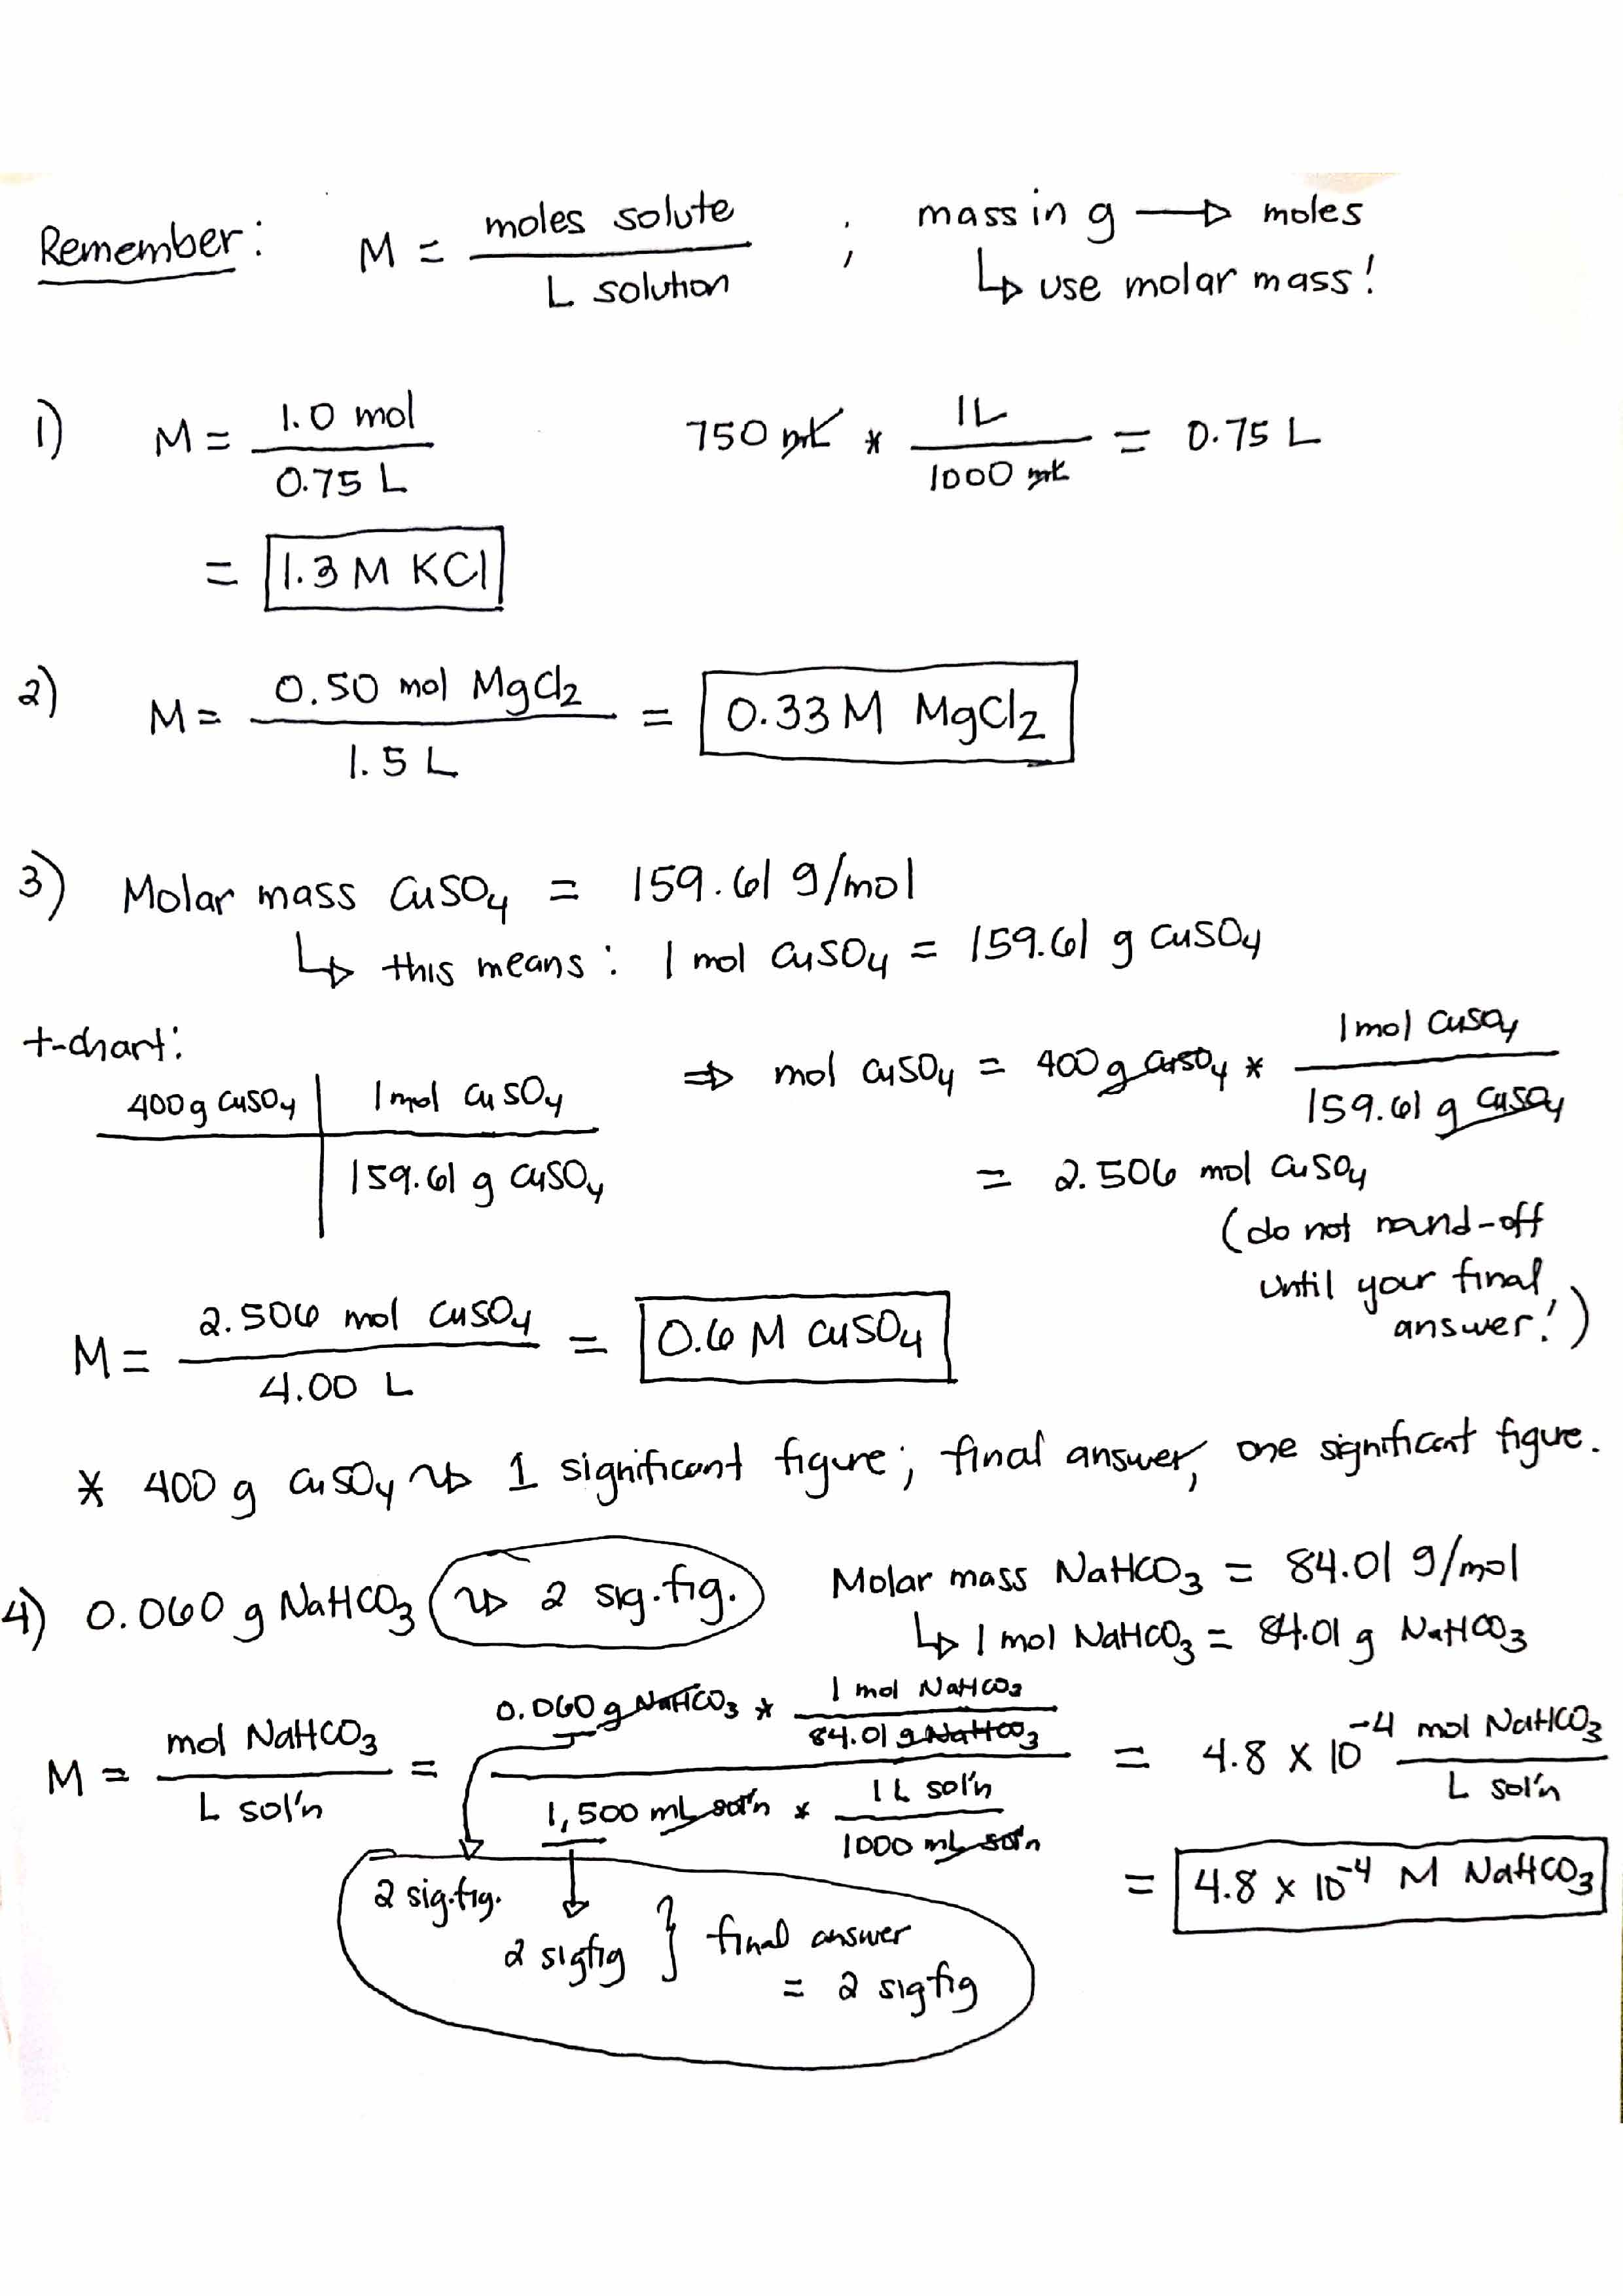 Remember: M = moles solute / L solution ; mass in g → moles
↳ use molar mass!
1) M = 1.0 mol / 0.75 L    750 mL * 1L / 1000 mL = 0.75 L
= 1.3 M KCl
2) M = 0.50 mol MgCl₂ / 1.5 L = 0.33 M MgCl₂
3) Molar mass CuSO₄ = 159.61 g/mol
↳ this means: 1 mol CuSO₄ = 159.61 g CuSO₄
t-chart:
400 g CuSO₄ | 1 mol CuSO₄
159.61 g CuSO₄
⇒ mol CuSO₄ = 400 g CuSO₄ * 1 mol CuSO₄ / 159.61 g CuSO₄
= 2.506 mol CuSO₄
(do not round-off
until your final
answer!)
M = 2.506 mol CuSO₄ / 4.00 L = 0.6 M CuSO₄
* 400 g CuSO₄ ⇝ 1 significant figure; final answer, one significant figure.
4) 0.060 g NaHCO₃ ⇝ 2 sig.fig.    Molar mass NaHCO₃ = 84.01 g/mol
↳ 1 mol NaHCO₃ = 84.01 g NaHCO₃
M = mol NaHCO₃ / L sol'n = 0.060 g NaHCO₃ * 1 mol NaHCO₃ / 84.01 g NaHCO₃ / 1,500 mL sol'n * 1 L sol'n / 1000 mL sol'n = 4.8 x 10⁻⁴ mol NaHCO₃ / L sol'n
= 4.8 x 10⁻⁴ M NaHCO₃
2 sig.fig.
2 sigfig } final answer
= 2 sigfig